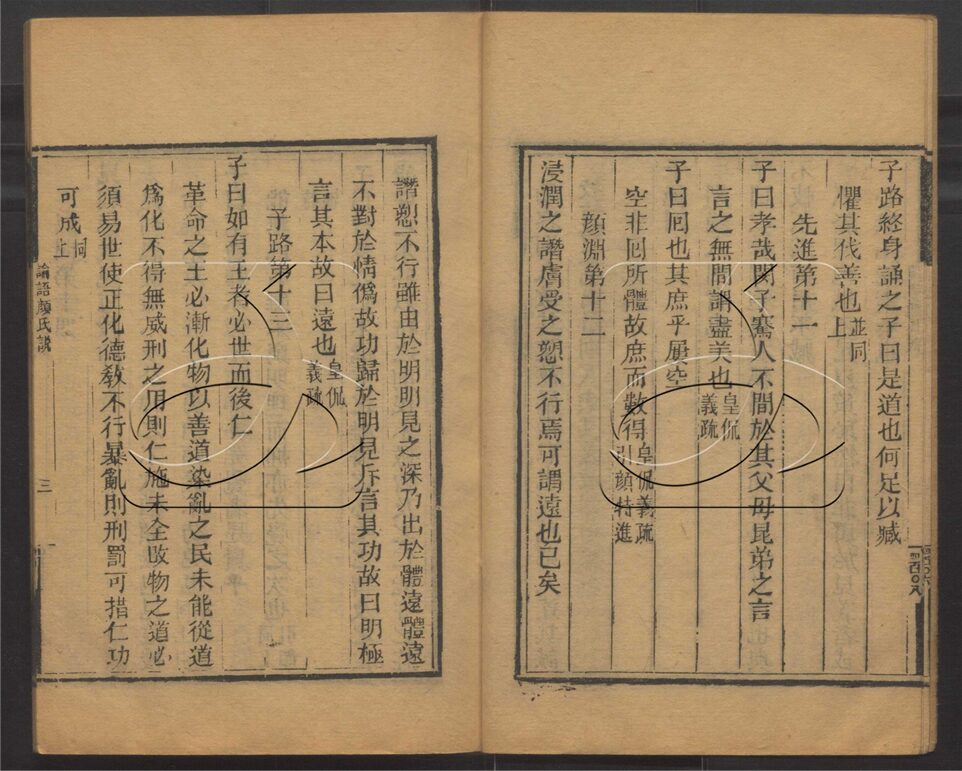 子路終身誦之子曰是道也何足以臧
懼其伐善也並同上
先進第十一
子曰孝哉閔子騫人不間於其父母昆弟之言
言之無間謂盡美也皇侃義疏
子曰回也其庶乎屢空
空非回所體故庶而數得皇侃義疏引顏特進
顏淵第十二
浸潤之譖膚受之愬不行焉可謂遠也已矣
譖愬不行雖由於明明見之深乃出於體遠體遠
不對於情僞故功歸於明見斥言其功故曰明極
言其本故曰遠也皇侃義疏
子路第十三
子曰如有王者必世而後仁
革命之王必漸化物以善道染亂之民未能從道
爲化不得無威刑之用則仁施未全改物之道必
須易世使正化德敎不行暴亂則刑罰可措仁功
可成同上
論語顏氏說
三